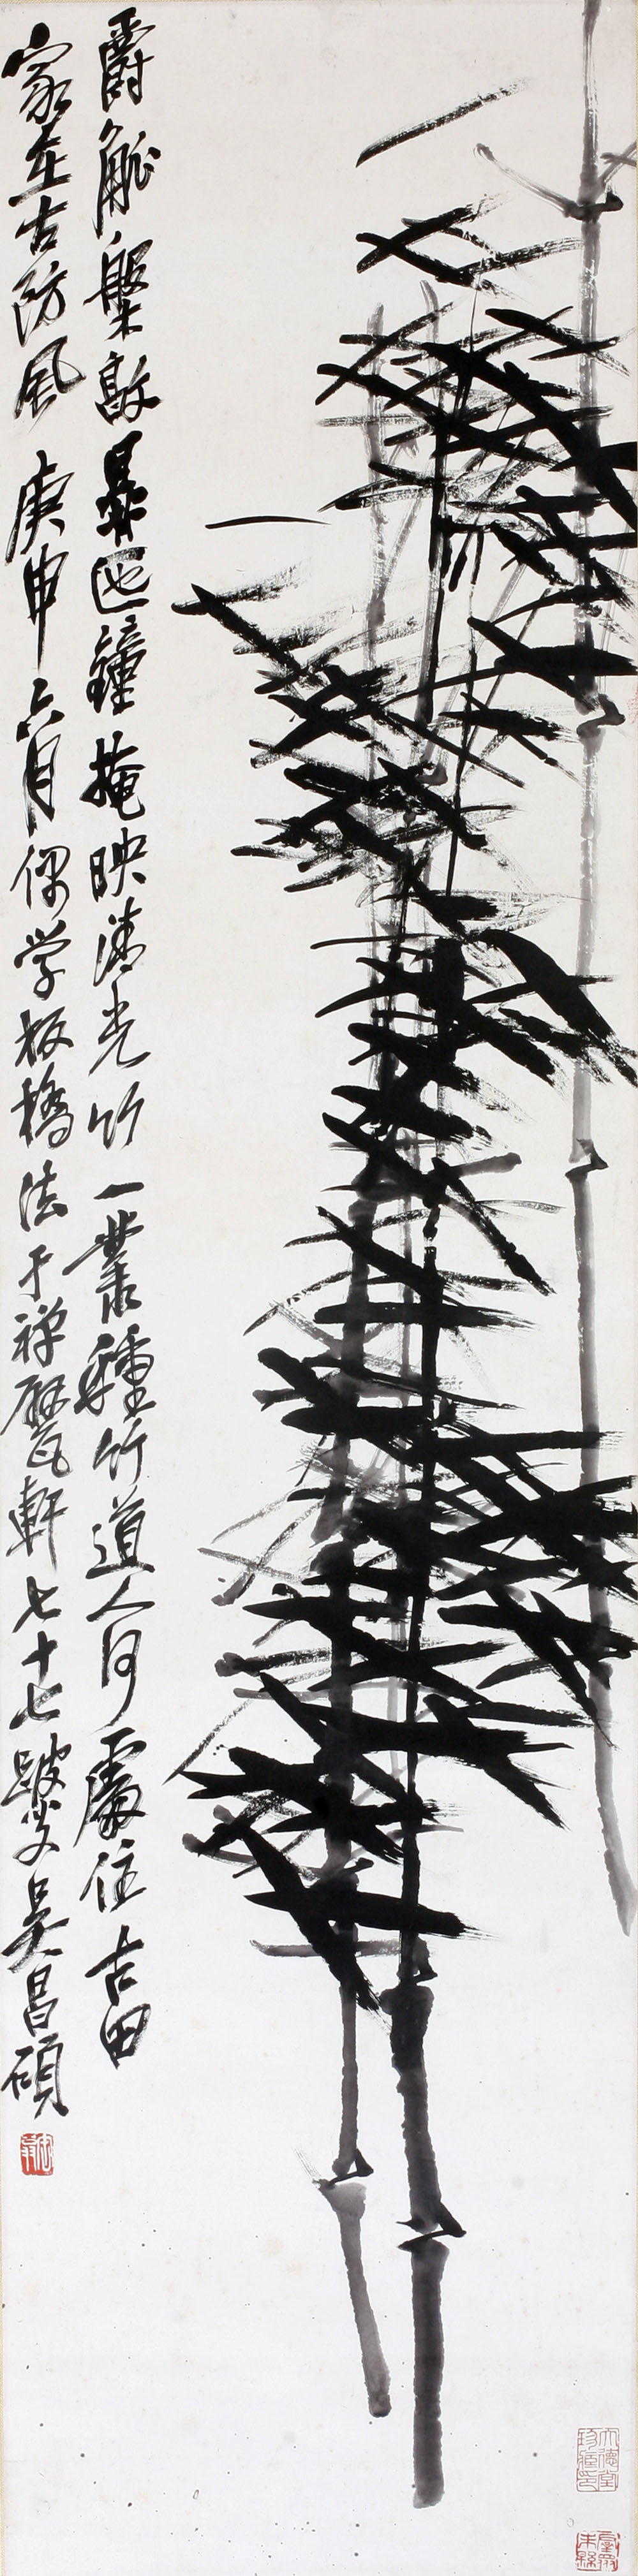 爵觚槃敦鼎匜鐘掩映清光竹一叢種竹道人何處住古田
家在古防風 庚申六月偶学板橋法于禅甓軒七十七跛叟吳昌碩